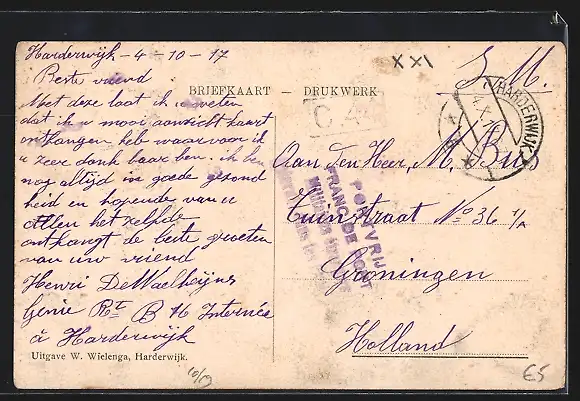 Harderwijk - 4 - 10 - 17
Beste vriend
BRIEFKAART — DRUKWERK
Met deze laat ik u weten
dat ik u mooi aanzicht kaart
ontfangen heb waar voor ik
u zeer dank baar ben. ik ben
nog altijd in goede gezond
heid en hopende van u
allen het zelfde
ontfangt de beste groeten
van uw vriend
Henri De Waelheijns
Genie Rt B 16 Internée
à Harderwijk
Uitgave W. Wielenga, Harderwijk.
XXI
S. M.
HARDERWIJK
C. 4
PORTVRIJ
FRANC DE PORT
Aan Den Heer, M, Bus
Tuinstraat No 36 1/A
Groningen
Holland
10/17
€5